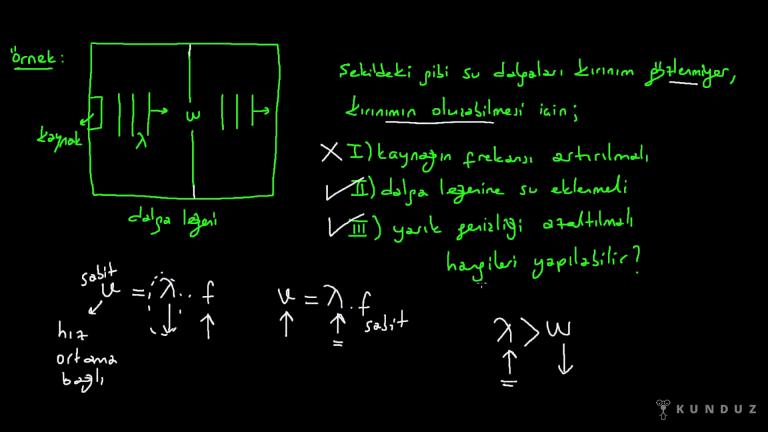 Örnek:
Şekildeki gibi su dalgaları kırınım gözlenmiyor,
kırınımın oluşabilmesi için;
I) kaynağın frekansı artırılmalı
II) dalga leğenine su eklenmeli
III) yarık genişliği azaltılmalı
hangileri yapılabilir?
kaynak
λ
w
dalga leğeni
sabit
v = λ . f
hız
ortama
bağlı
v = λ . f
sabit
λ > w
KUNDUZ